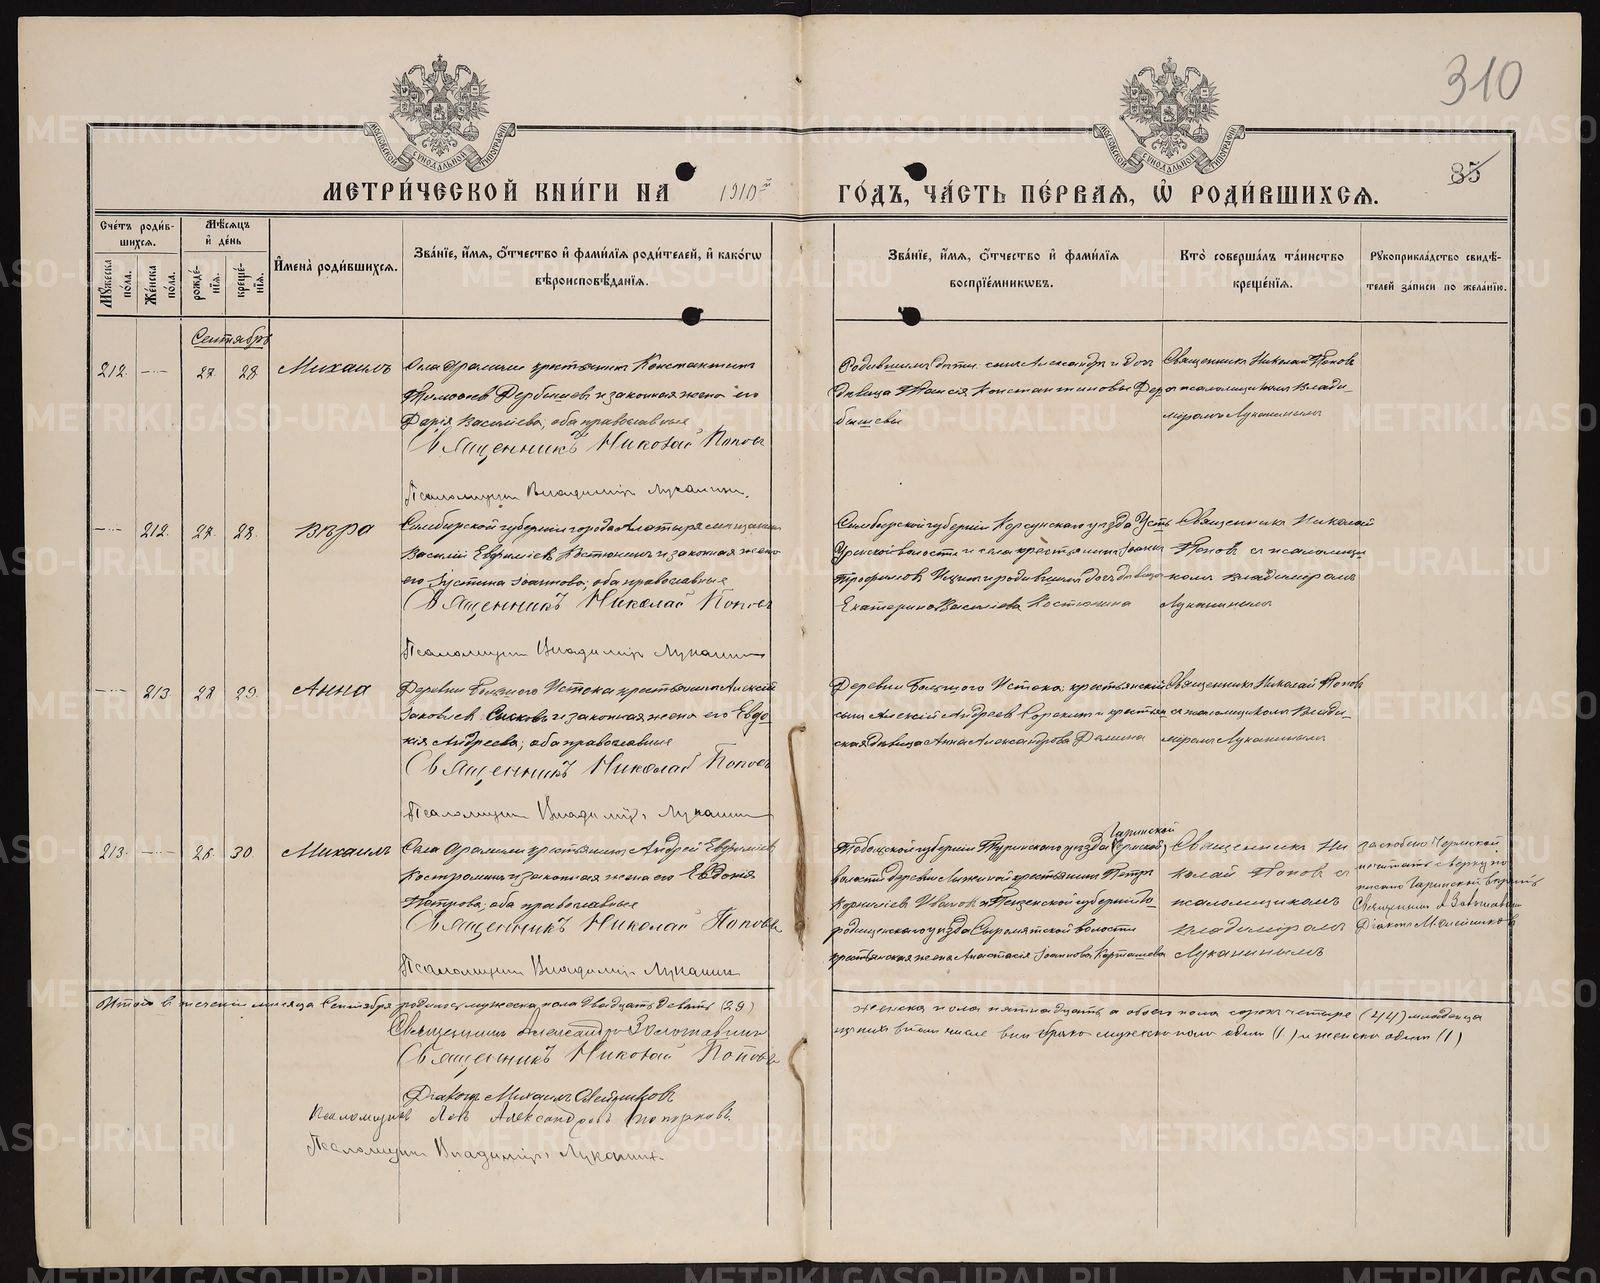 310
85
МЕТРИ́ЧЕСКОЙ КНИ́ГИ НА 1910й ГО́ДЪ, ЧА́СТЬ ПЕ́РВАЯ, Ѡ РОДИ́ВШИХСЯ.
Сче́тъ роди́вшихся.
Мѣ́сяцъ и де́нь
Имена̀ роди́вшихся.
Зва́нїе, и́мя, о́тчество и фами́лїя роди́телей, и како́гѡ
вѣроисповѣ́данїя.
Зва́нїе, и́мя, о́тчество и фами́лїя
воспрїе́мникѡвъ.
Кто̀ соверша́лъ та́инство
креще́нїя.
Рукоприкла́дство свидѣ́-
телей за́писи по жела́нїю.
Му́жеска по́ла.
Же́нска по́ла.
рожде́-
нїя.
креще́-
нїя.
Сентябрь
212. 27. 28. Михаилъ
Села Арамили крестьянинъ Константинъ
и законная жена его
Дарія Василіева, оба православные
Священникъ Николай Поповъ
Псаломщикъ Владиміръ Луканинъ.
Родившихъ дѣти: сынъ Александръ и дочь
дѣвица Таисія Константиновы
Священникъ Николай Поповъ
съ псаломщикомъ Влади-
міромъ Луканинымъ
212. 27. 28. Вѣра
Симбирской губерніи города Алатыря мѣщанинъ
Василій Евфиміевъ Костюнинъ и законная жена
его Іустина Іоаннова, оба православные
Священникъ Николай Поповъ
Псаломщикъ Владиміръ Луканинъ
Симбирской губерніи Корсунскаго уѣзда, Усть
Уренской волости и села крестьянинъ Іоаннъ
Трофимовъ и родившихъ дочь дѣвица
Екатерина Василіева Костюнина
Священникъ Николай
Поповъ съ псаломщи-
комъ Владиміромъ
Луканинымъ
213 28 29. Анна
Деревни Большого Истока крестьянинъ Алексій
Іаковлевъ Сысковъ и законная жена его Евдо-
кія Андреева; оба православные
Священникъ Николай Поповъ
Псаломщикъ Владиміръ Луканинъ
Деревни Большого Истока: крестьянскій
сынъ Алексій Андреевъ Сорокинъ и крестьян-
ская дѣвица Анна Александрова Демина
Священникъ Николай Поповъ
съ псаломщикомъ Влади-
міромъ Луканинымъ
213. 26. 30. Михаилъ
Села Арамили крестьянинъ Андрей Евфиміевъ
Костроминъ и законная жена его Евдокія
Петрова; оба православные
Священникъ Николай Поповъ
Псаломщикъ Владиміръ Луканинъ
Гаринской
Тобольской губерніи Туринскаго уѣзда
волости деревни крестьянинъ Петръ
Корниліевъ Ивановъ и Пензенской губерніи Го-
родищенскаго уѣзда Сыромятской волости
крестьянская жена Анастасія Іоаннова Карташева
Священникъ Ни-
колай Поповъ съ
псаломщикомъ
Владиміромъ
Луканинымъ
почитать сверху по-
писано Гаринской вѣрить
Священникъ А Золотавинъ
Діаконъ М. Олейниковъ
Итого в теченіи мѣсяца Сентября родилось мужеска пола двадцать девять (29)
женска пола пятнадцать а обоего пола сорокъ четыре (44) младенца
изъ нихъ в томъ числе внѣ брака мужеска пола одинъ (1) и женска одинъ (1)
Священникъ Александръ Золотавинъ
Священникъ Николай Поповъ
Діаконъ Михаилъ Олейниковъ
Псаломщикъ Левъ Александровъ Топорковъ.
Псаломщикъ Владиміръ Луканинъ.